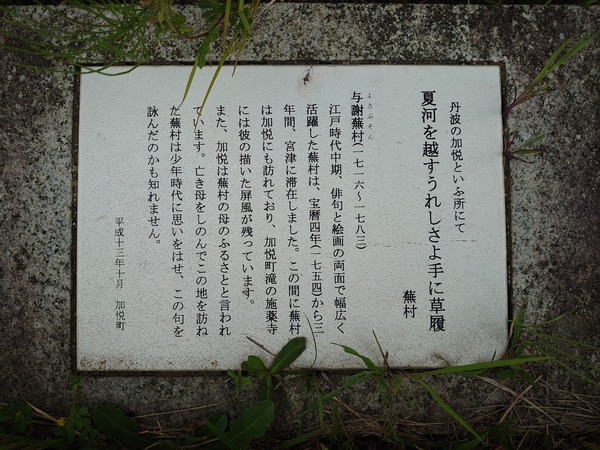 丹波の加悦といふ所にて
夏河を越すうれしさよ手に草履
蕪村
よさぶそん
与謝蕪村(一七一六～一七八三)
江戸時代中期、俳句と絵画の両面で幅広く
活躍した蕪村は、宝暦四年(一七五四)から三
年間、宮津に滞在しました。この間に蕪村
は加悦にも訪れており、加悦町滝の施薬寺
には彼の描いた屏風が残っています。
また、加悦は蕪村の母のふるさとと言われ
ています。亡き母をしのんでこの地を訪ね
た蕪村は少年時代に思いをはせ、この句を
詠んだのかも知れません。
平成十三年十月　加悦町